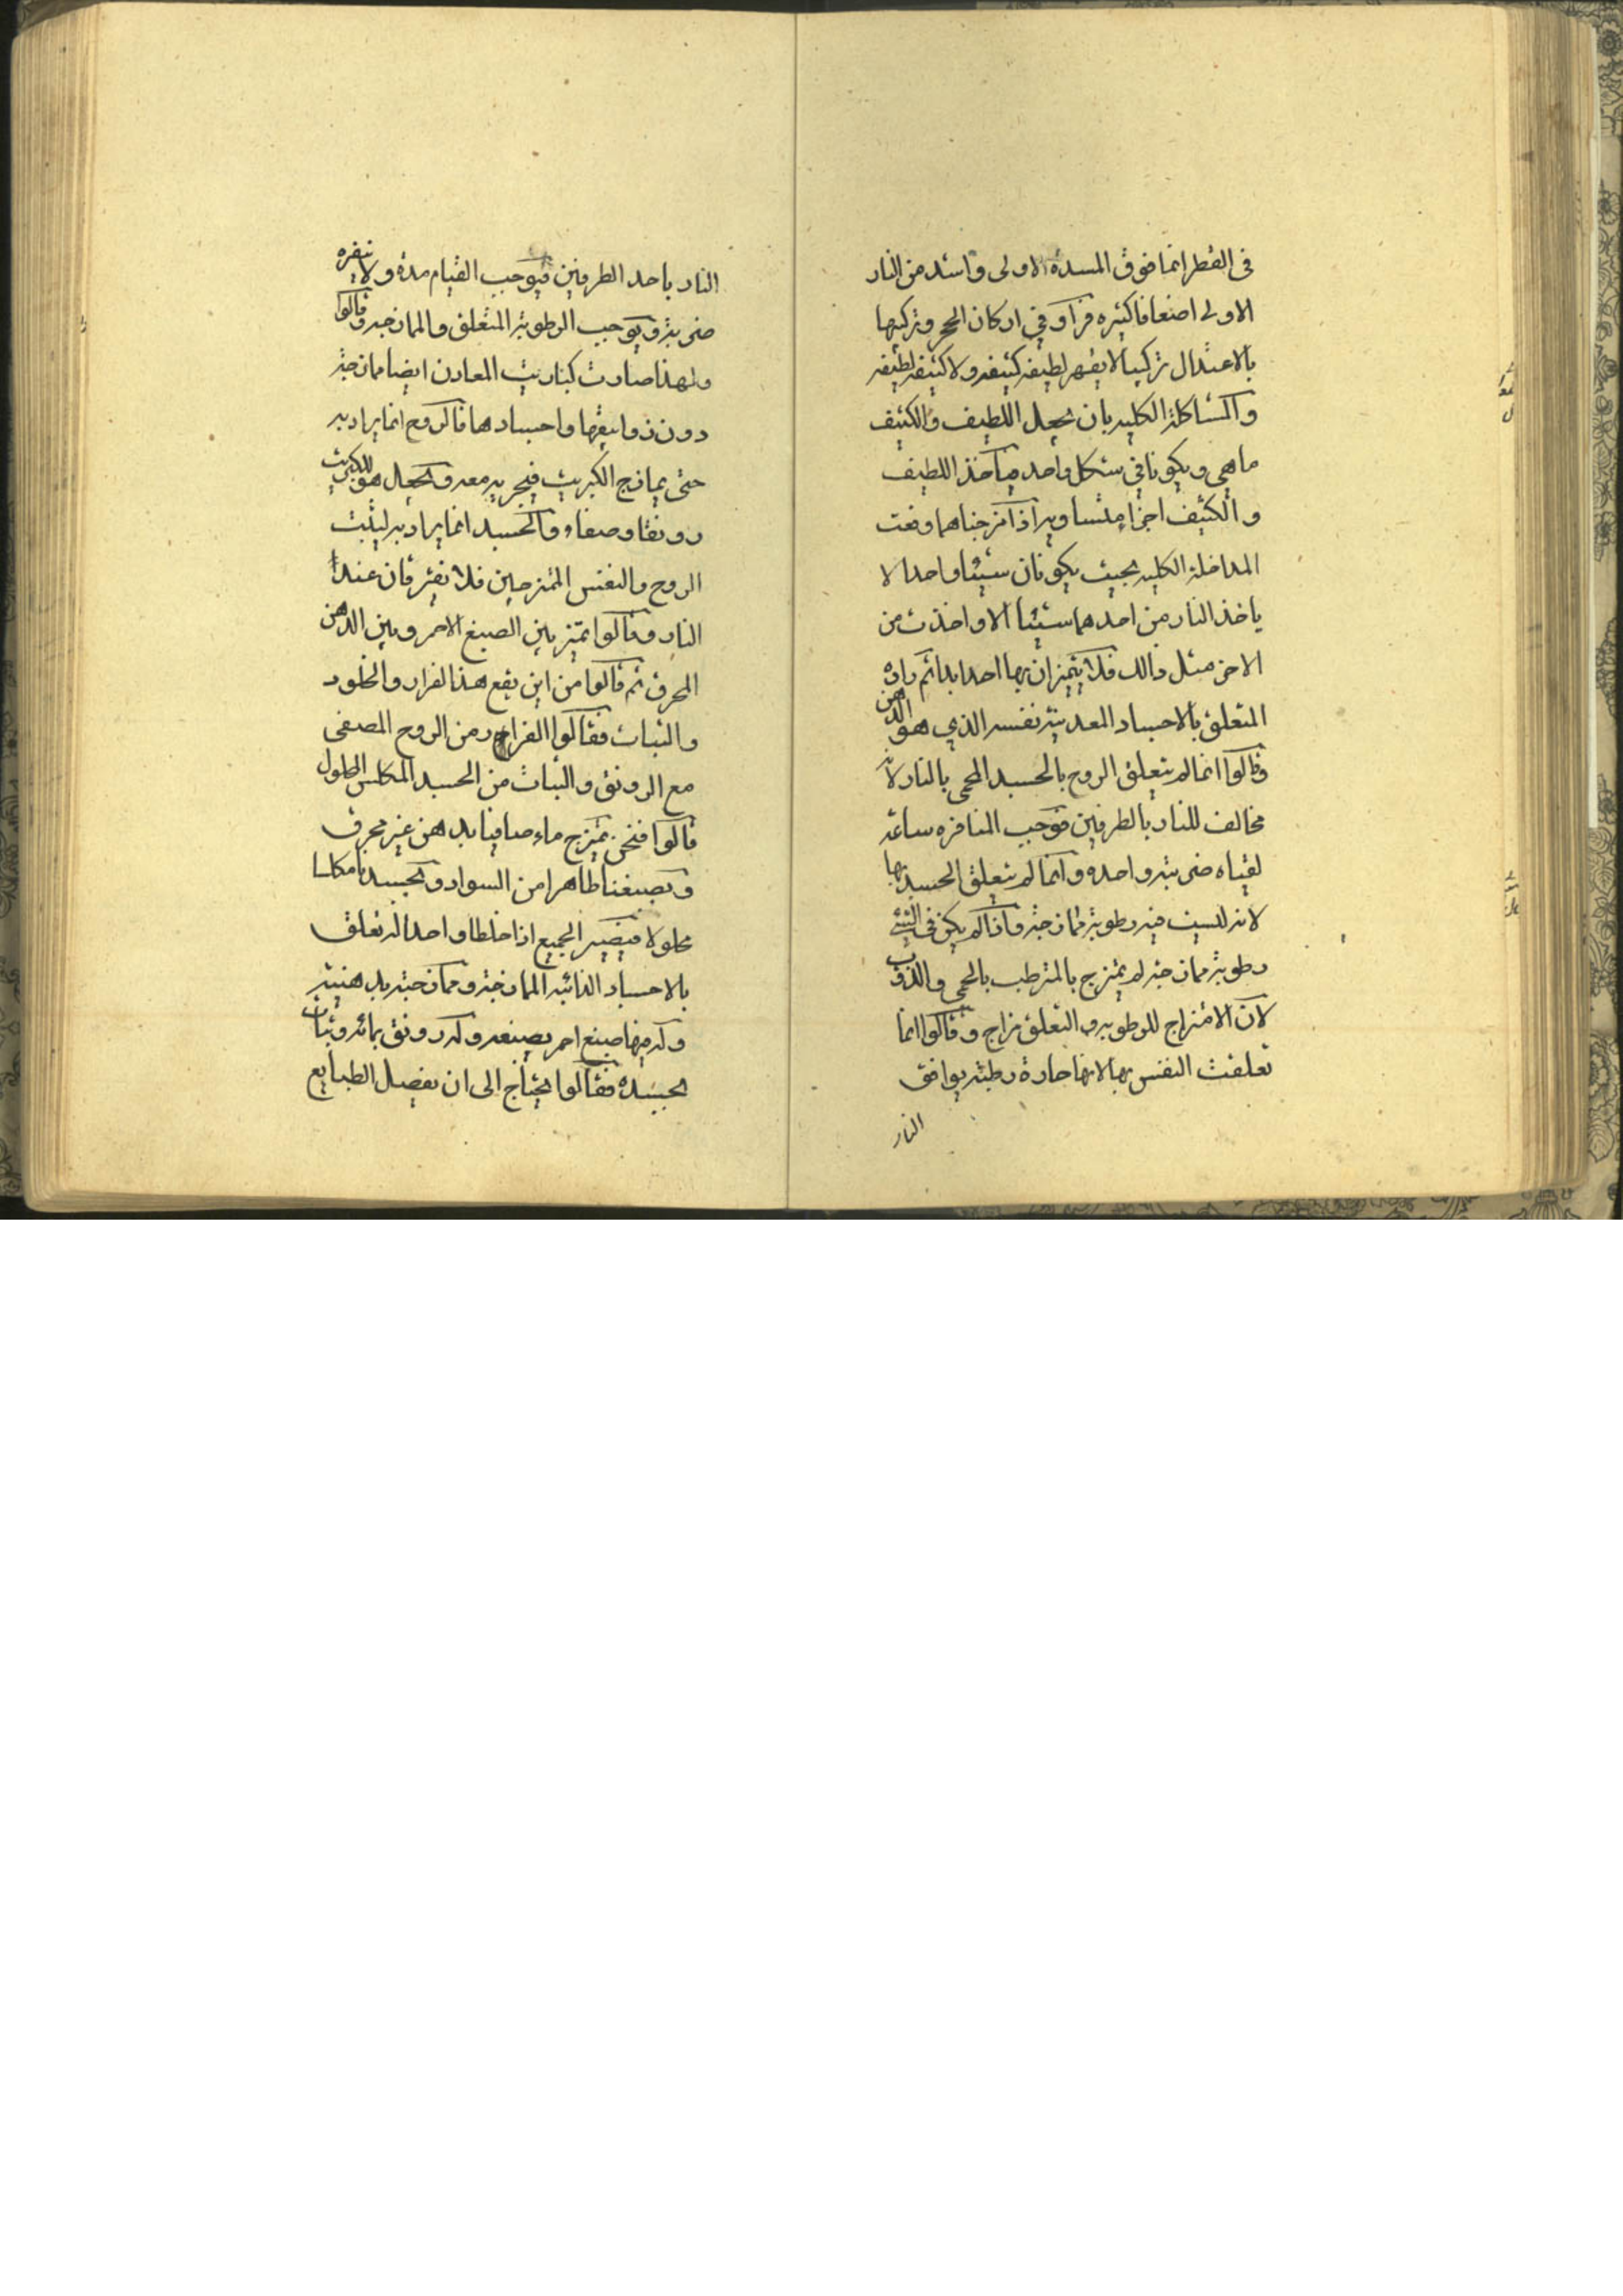 في القطر انما فوق المدة الاولى واشد من النار
الاولى اضعافا كثيره فزاوفي اركان الحجر وتركيبها
بالاعتدال تركيبا لا يقهر لطيفه كثيفه ولا كثيفه لطيفه
والمشاكلة الكليه بان يجعل اللطيف والكثيف
ماهي ويكونا في شكل واحد فيأخذ اللطيف
والكثيف اجزاء متساويه اذا مزجناهما وقعت
المداخلة الكليه بحيث يكونان شيئا واحدا لا
ياخذ النار من احدهما شيئا الا واخذت من
الاخر مثل ذالك فلا يتميزان بها احدا بدا ثم
المتعلق بالاجساد المعدنية نفسه الذي هو الدهن
وقالوا انما لم يتعلق الروح بالجسد المحمي بالنار لانه
مخالف للنار بالطرفين فتوجب المنافره ساعة
لقياه ضربة واحده وانما لم يتعلق الجسد بها
لانه ليست فيه رطوبة ممازجة واذا لم يكن في الشئ
رطوبة ممازجه لم يمتزج بالمترطب بالحمي والذوب
لان الامتزاج للرطوبه والتعلق مزاج وقالوا انما
تعلقت النفس بها لانها حارة رطبة يوافق
النار
النار باحد الطرفين فيوجب القيام مدة ولا ينفره
ضربة ويوجب الرطوبة التعلق والممازجه وقالوا
ولهذا صارت كباريت المعادن ايضا ممازجة
دون زوابيقها واجسادها فالروح انما يراد به
حتى يمازج الكبريت فيجريه معه ويجعل هو للكبريت
رونقا وصفاء والجسد انما يراد به ليثبت
الروح والنفس الممتزجين فلا يفترقان عند
النار وقالوا نميز بين الصبغ الاحمر وبين الدهن
المحرق ثم قالوا من اين يقع هذا القرار والخلود
والثبات فقالوا القرار من الروح المصفى
مع الرونق والثبات من الجسد المكلس المحلول
قالوا فنحن نمتزج ماء صافيا بدهن غير محرق
وبصبغنا طاهرا من السواد وبجسدنا مكلسا
محلولا فيصير الجميع اذا خلطا واحدا له تعلق
بالاجساد الذائبه الممازجة وممازجته بدهنيته
وله فيها صبغ احمر بصبغه وله رونق بمائه وثبات
بجسده فقالوا يحتاج الى ان نفصل الطبايع